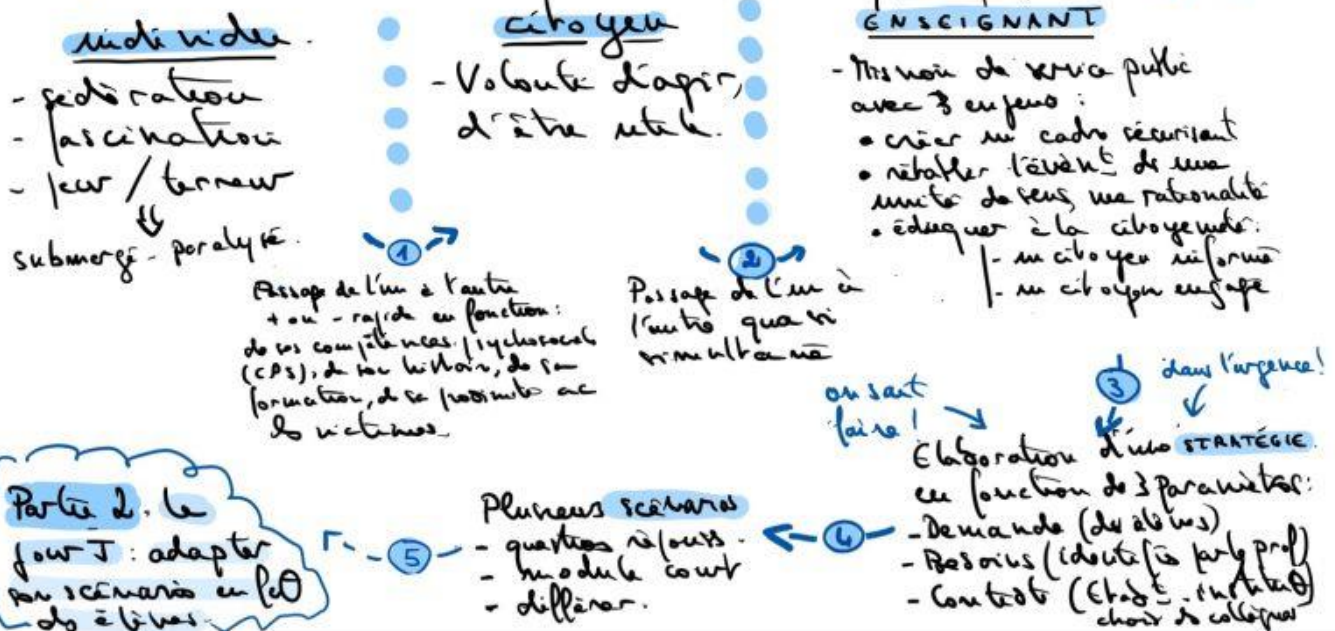 individu.
- sidération
- fascination
- peur / terreur
submergé - paralysé.
citoyen
- Volonté d'agir,
d'être utile.
ENSEIGNANT
- Mission de service public
avec 3 enjeux :
• créer un cadre sécurisant
• rétablir l'évènt de une
unité de sens, une rationalité
• éduquer à la citoyenneté:
- un citoyen informé
- un citoyen engagé
1
Passage de l'un à l'autre
+ ou - rapide en fonction:
de ses compétences psychosocial
(CPS), de son histoire, de sa
formation, de sa proximité ac
les victimes
2
Passage de l'un à
l'autre quasi
simultané
3
dans l'urgence!
on sait
faire!
Elaboration d'une STRATÉGIE
en fonction de 3 paramètres:
- Demande (des élèves)
- Besoins (identifiés par le prof)
- Contexte (Etabt.
choix de collègues
4
Plusieurs scénarios
- questions réponses.
- module court
- différer.
5
Partie 2. le
jour J : adapter
son scénario en
des élèves